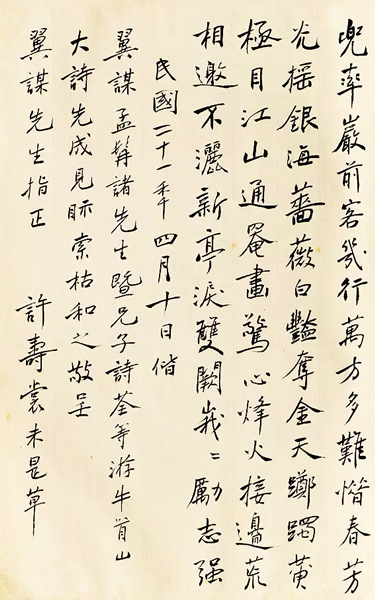 兜率巖前客幾行萬方多難惜春芳
光搖銀海薔薇白豔奪金天躑躅黃
極目江山通罨畫驚心烽火接邊荒
相邀不灑新亭淚雙闕峩〻勵志强
民國二十一年四月十日偕
翼謀孟髯諸先生暨兄子詩荃等游牛首山
大詩先成見眎索枯和之敬呈
翼謀先生指正
許壽裳未是草